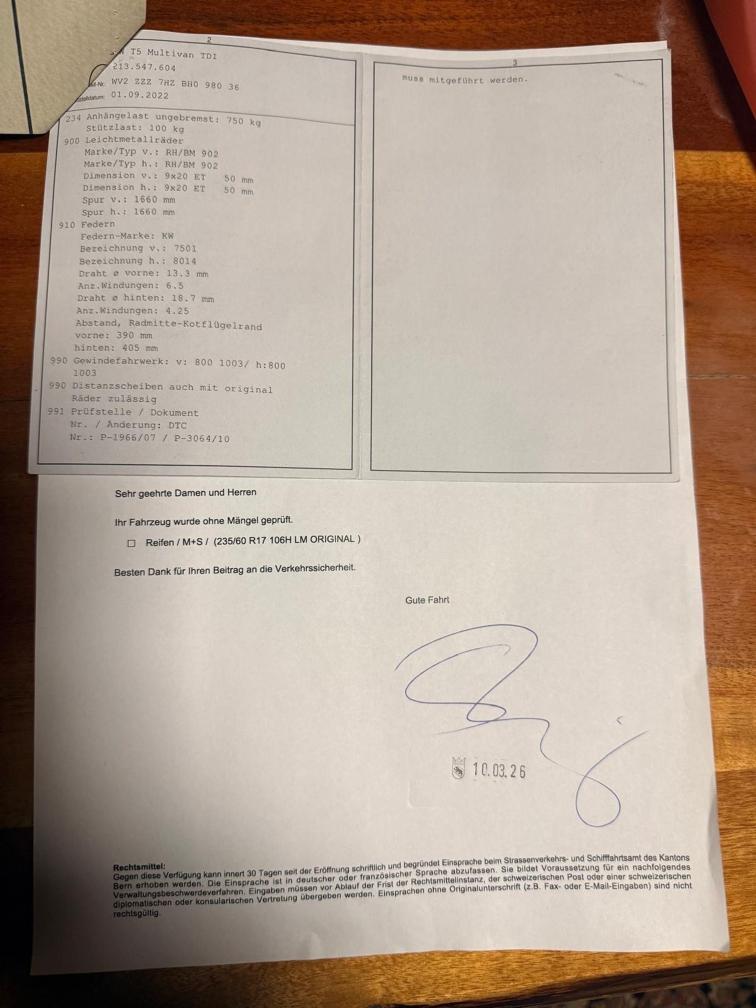 2
T5 Multivan TDI
213.547.604
WV2 ZZZ 7HZ BH0 980 36
01.09.2022
234 Anhängelast ungebremst: 750 kg
Stützlast: 100 kg
900 Leichtmetallräder
Marke/Typ v.: RH/BM 902
Marke/Typ h.: RH/BM 902
Dimension v.: 9x20 ET 50 mm
Dimension h.: 9x20 ET 50 mm
Spur v.: 1660 mm
Spur h.: 1660 mm
910 Federn
Federn-Marke: KW
Bezeichnung v.: 7501
Bezeichnung h.: 8014
Draht ø vorne: 13.3 mm
Anz.Windungen: 6.5
Draht ø hinten: 18.7 mm
Anz.Windungen: 4.25
Abstand, Radmitte-Kotflügelrand
vorne: 390 mm
hinten: 405 mm
990 Gewindefahrwerk: v: 800 1003/ h:800
1003
990 Distanzscheiben auch mit original
Räder zulässig
991 Prüfstelle / Dokument
Nr. / Änderung: DTC
Nr.: P-1966/07 / P-3064/10
3
muss mitgeführt werden.
Sehr geehrte Damen und Herren
Ihr Fahrzeug wurde ohne Mängel geprüft.
☐ Reifen / M+S / (235/60 R17 106H LM ORIGINAL )
Besten Dank für Ihren Beitrag an die Verkehrssicherheit.
Gute Fahrt
10.03.26
Rechtsmittel:
Gegen diese Verfügung kann innert 30 Tagen seit der Eröffnung schriftlich und begründet Einsprache beim Strassenverkehrs- und Schifffahrtsamt des Kantons
Bern erhoben werden. Die Einsprache ist in deutscher oder französischer Sprache abzufassen. Sie bildet Voraussetzung für ein nachfolgendes
Verwaltungsbeschwerdeverfahren. Eingaben müssen vor Ablauf der Frist der Rechtsmittelinstanz, der schweizerischen Post oder einer schweizerischen
diplomatischen oder konsularischen Vertretung übergeben werden. Einsprachen ohne Originalunterschrift (z.B. Fax- oder E-Mail-Eingaben) sind nicht
rechtsgültig.